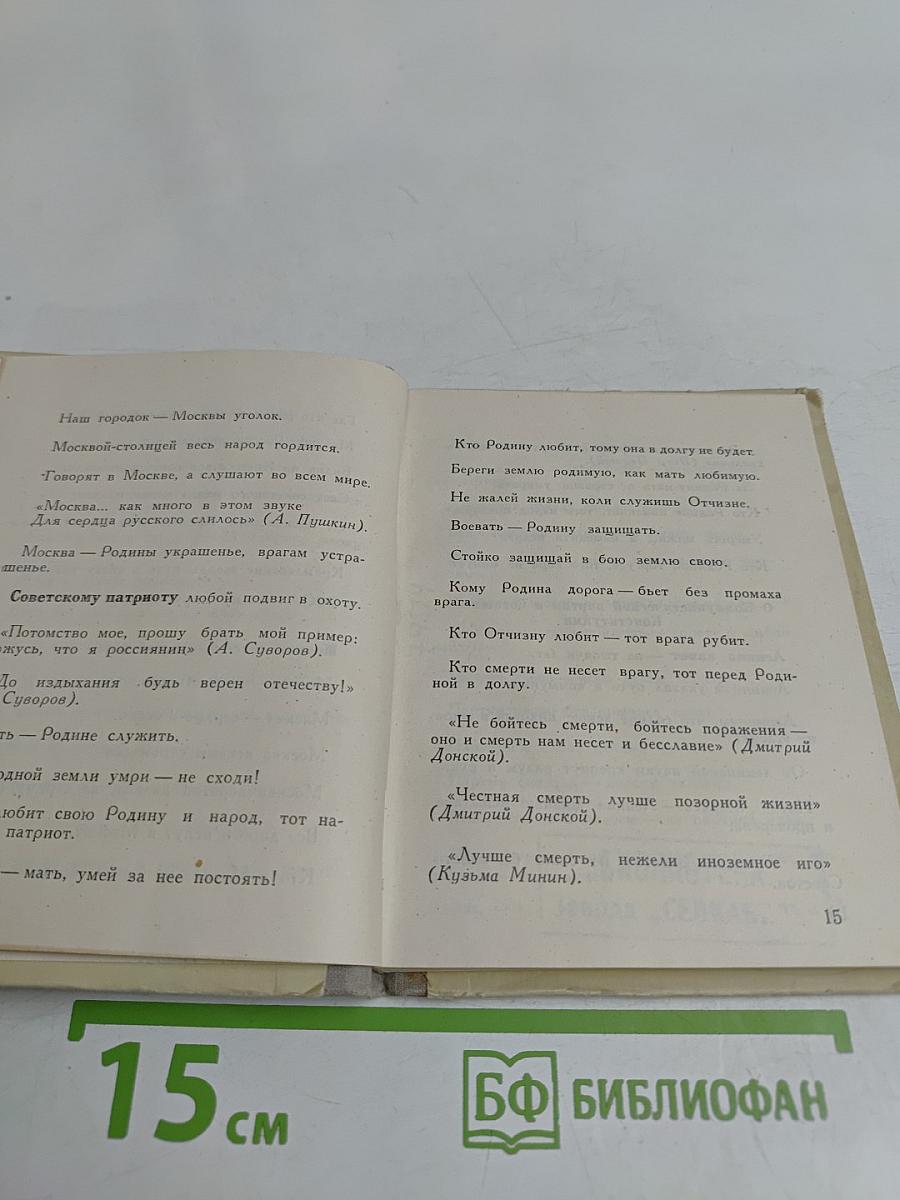 Наш городок — Москвы уголок.
Москвой-столицей весь народ гордится.
Говорят в Москве, а слушают во всем мире.
«Москва... как много в этом звуке
Для сердца русского слилось» (А. Пушкин).
Москва — Родины украшенье, врагам устра-
шенье.
Советскому патриоту любой подвиг в охоту.
«Потомство мое, прошу брать мой пример:
жусь, что я россиянин» (А. Суворов).
До издыхания будь верен отечеству!»
Суворов).
ть — Родине служить.
одной земли умри — не сходи!
любит свою Родину и народ, тот на-
патриот.
— мать, умей за нее постоять!
Кто Родину любит, тому она в долгу не будет.
Береги землю родимую, как мать любимую.
Не жалей жизни, коли служишь Отчизне.
Воевать — Родину защищать.
Стойко защищай в бою землю свою.
Кому Родина дорога — бьет без промаха
врага.
Кто Отчизну любит — тот врага рубит.
Кто смерти не несет врагу, тот перед Роди-
ной в долгу.
«Не бойтесь смерти, бойтесь поражения —
оно и смерть нам несет и бесславие» (Дмитрий
Донской).
«Честная смерть лучше позорной жизни»
(Дмитрий Донской).
«Лучше смерть, нежели иноземное иго»
(Кузьма Минин).
15
15 см
БФ БИБЛИОФАН